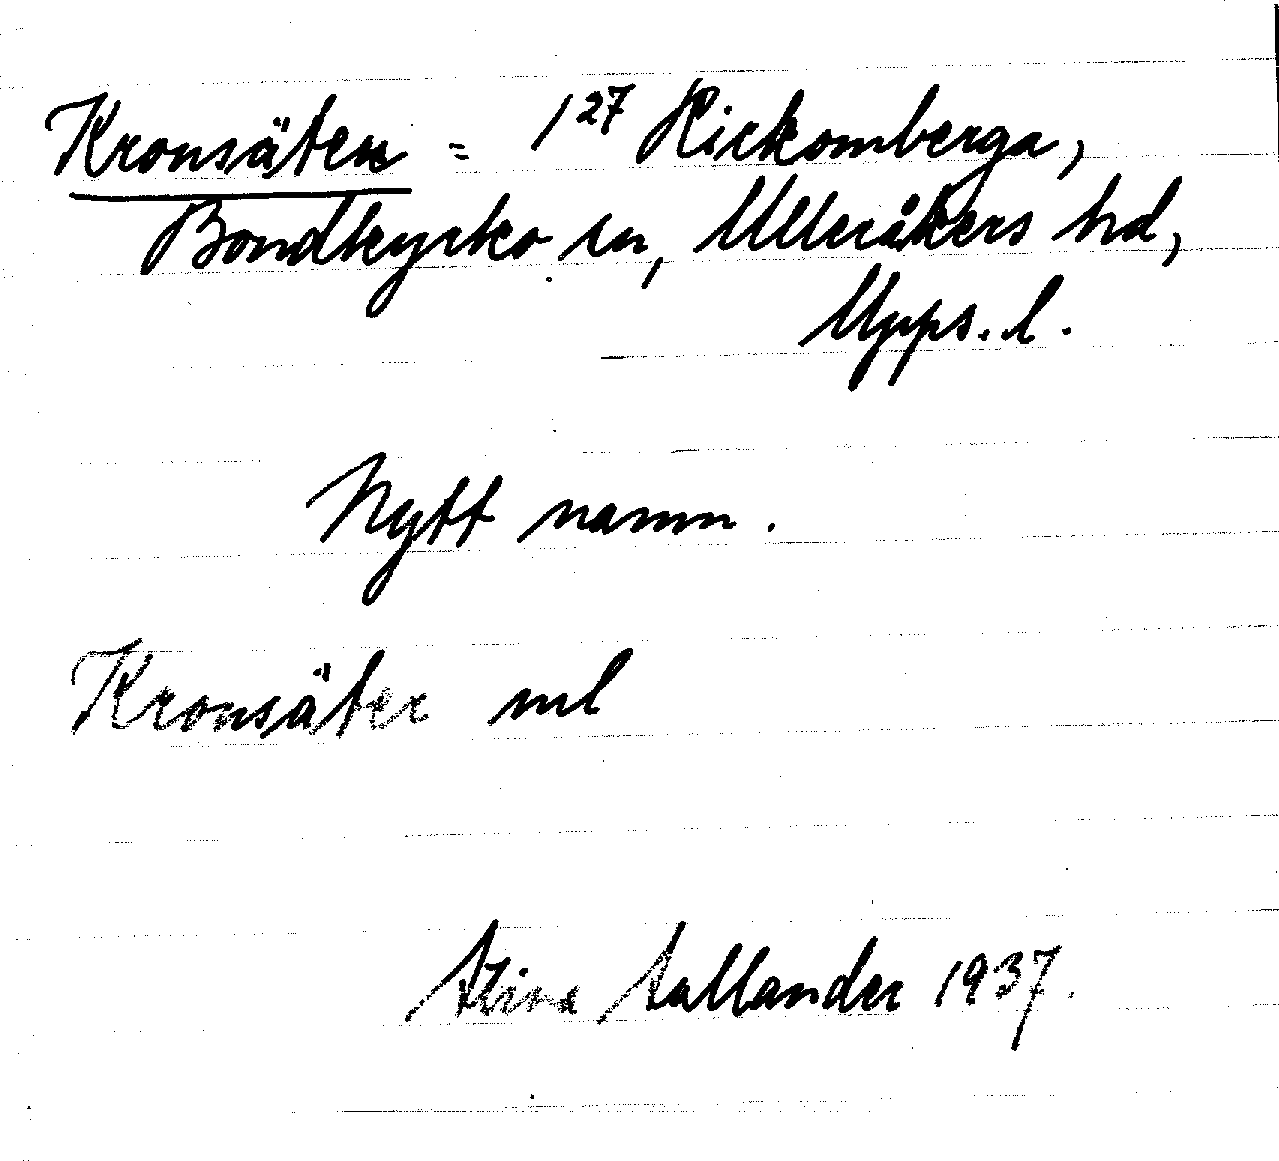 Kronsäter = 1²⁷ Hickomberga,
Bondkyrko sn, Ulleråkers hd,
Upps. l.
Nytt namn.
Kronsäter ml
Stina Sallander 1937.